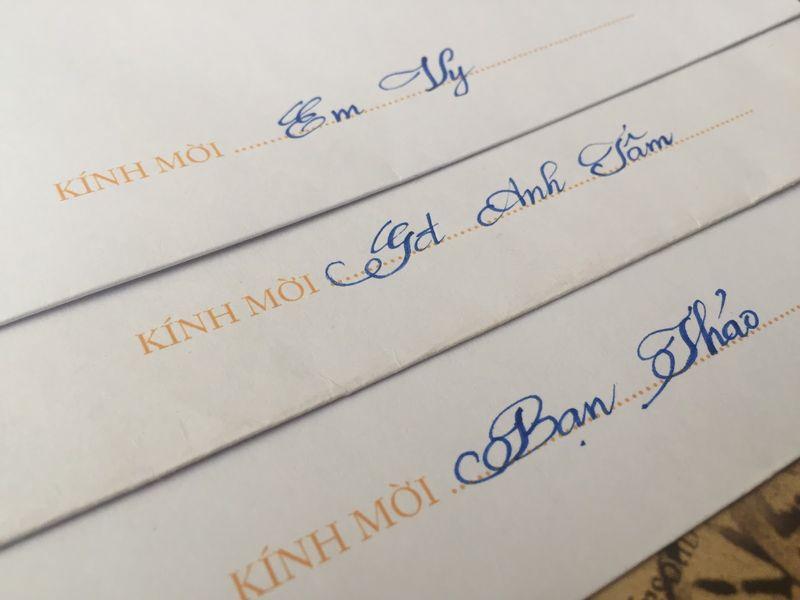 KÍNH MỜI Em Vy
KÍNH MỜI Gđ Anh Tâm
KÍNH MỜI Bạn Thảo